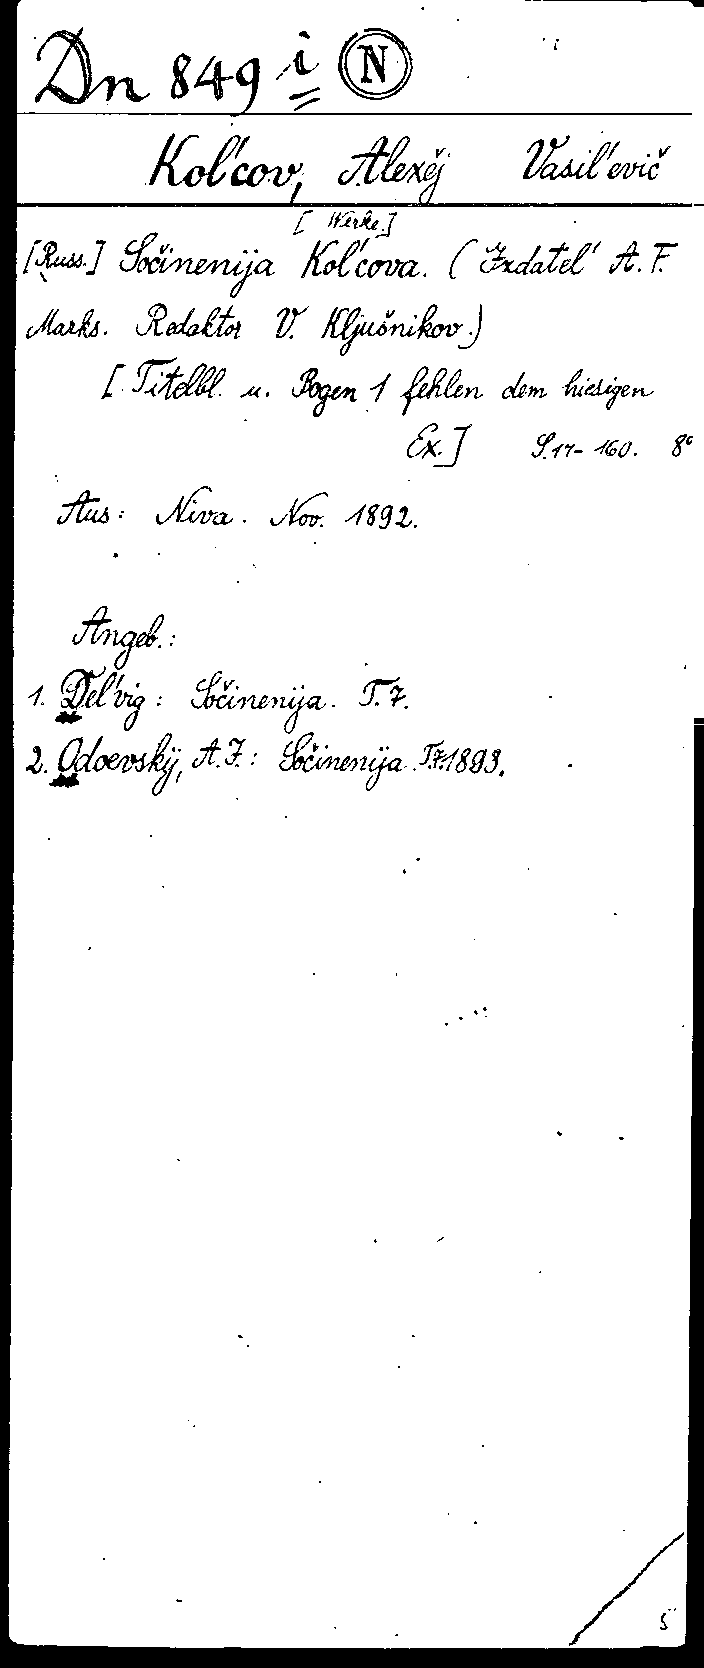 Dn 849 i N
Kol'cov, Alexěj Vasil'evič
[Werke.]
[Russ.] Sočinenija Kol'cova. (Izdatel' A. F.
Marks. Redaktor V. Kljušnikov.)
[Titelbl. u. Bogen 1 fehlen dem hiesigen
Ex.] S. 17-160. 8°
Aus: Niva. Nov. 1892.
Angeb.:
1. Del'vig: Sočinenija. T. 7.
2. Odoevskij, A. I.: Sočinenija. T.7.1893.
5